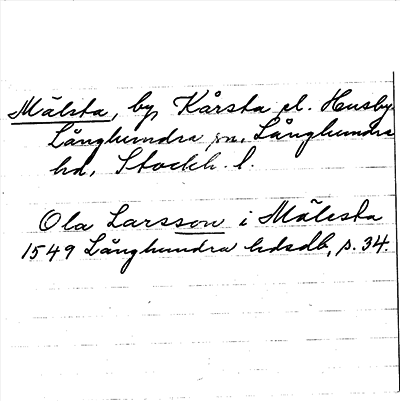 Mälsta, by, Kårsta el. Husby.
Långhundra sn, Långhundra
hd, Stockh. l.
Ola Larsson i Mälesta
1549 Långhundra hdsdb, s. 34.